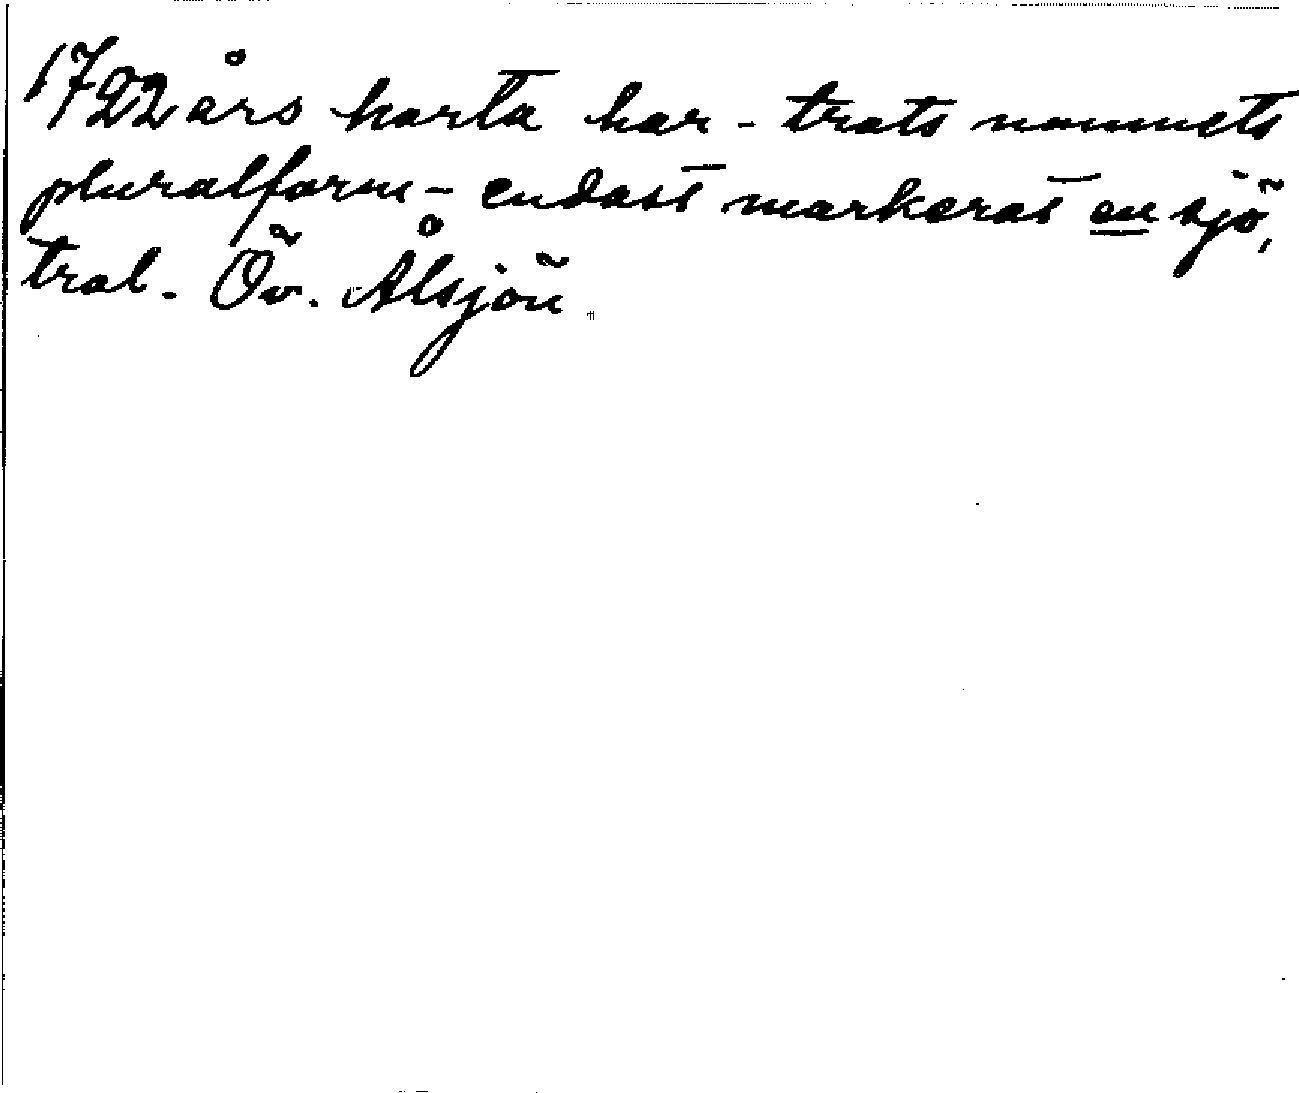 1722 års karta har - trots namnets
pluralform - endast markerat en sjö,
trol. Öv. Ålsjön.